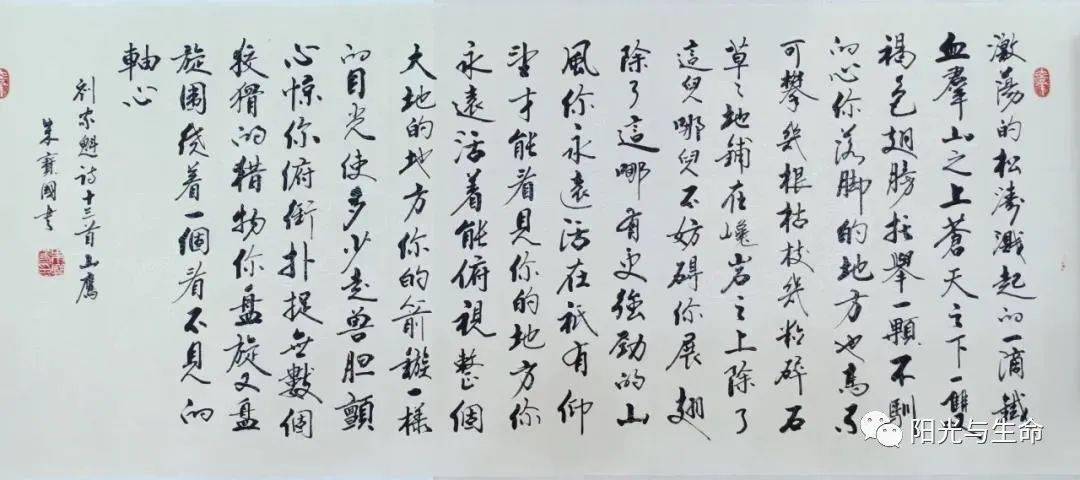 激蕩的松濤濺起的一滴鐵
血羣山之上蒼天之下一雙
褐色翅膀托舉一顆不馴
的心你落脚的地方也高不
可攀幾根枯枝幾粒碎石
草々地鋪在巉岩之上除了
這兒哪兒不妨碍你展翅
除了這哪有更強勁的山
風你永遠活在祇有仰
望才能看見你的地方你
永遠活着能俯視整個
大地的地方你的箭鏃一樣
的目光使多少走兽胆顫
心惊你俯衝扑捉無數個
狡猾的猎物你盤旋又盤
旋围绕着一個看不見的
軸心
刘家魁诗十三首山鷹
朱寶國書
阳光与生命